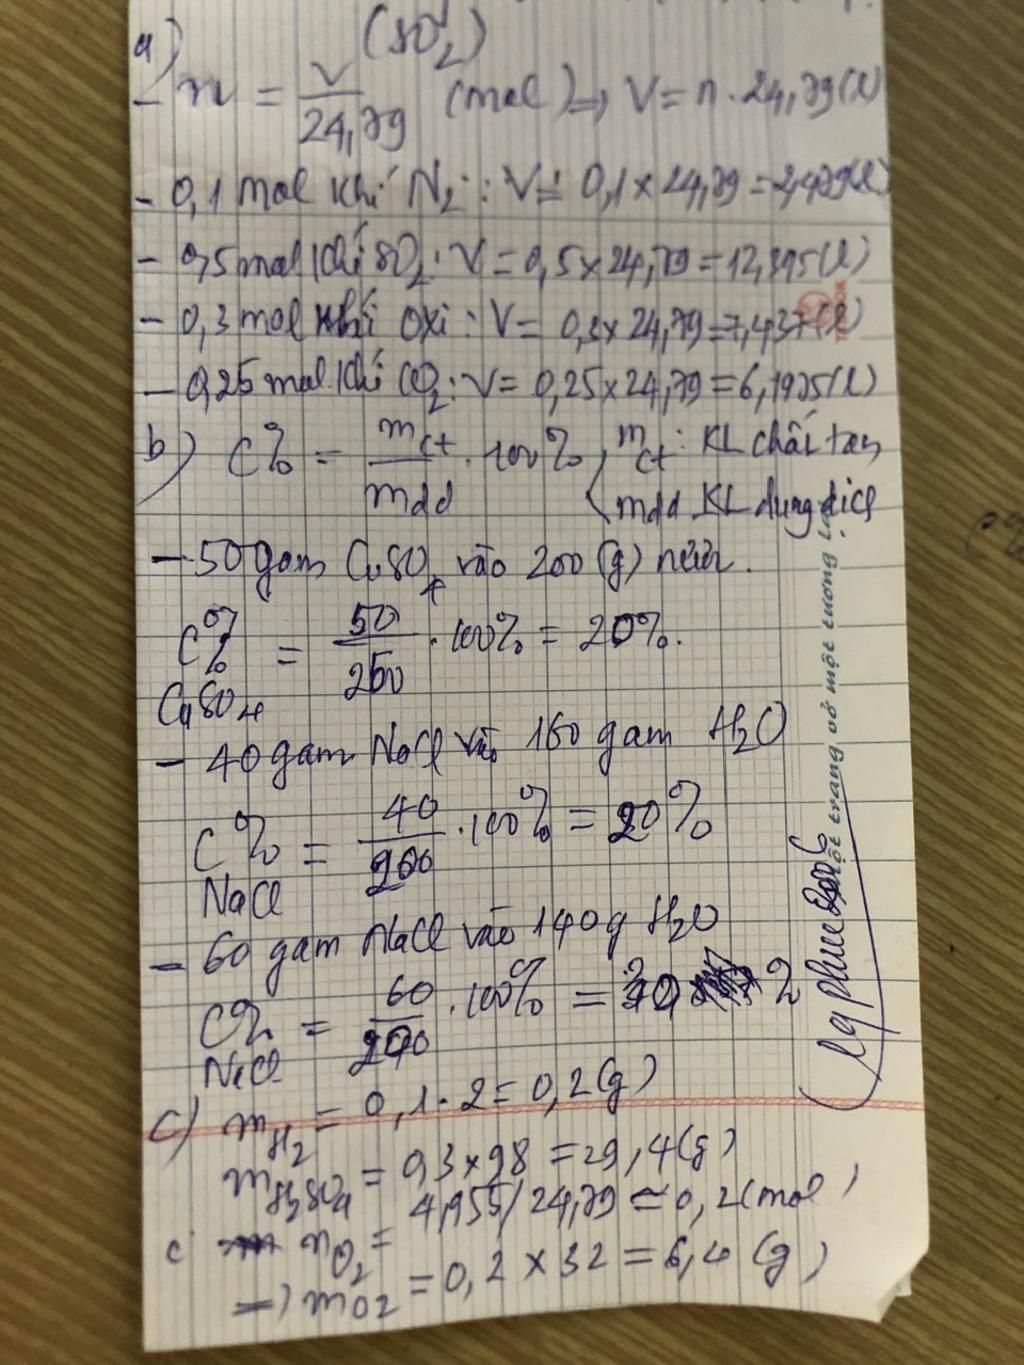 a) (SO2)
- n = V/24,79 (mol) => V = n . 24,79(l)
- 0,1 mol khí N2 : V = 0,1 x 24,79 = 2,479(l)
- 0,5 mol khí SO2 : V = 0,5 x 24,79 = 12,395(l)
- 0,3 mol khí oxi : V = 0,3 x 24,79 = 7,437(l)
- 0,25 mol khí CO2 : V = 0,25 x 24,79 = 6,1975(l)
b) C% = mct/mdd . 100%, mct : KL chất tan
mdd KL dung dịch
- 50 gam CuSO4 vào 200 (g) nước.
C% CuSO4 = 50/250 . 100% = 20%.
- 40 gam NaCl vào 160 gam H2O
C% NaCl = 40/200 . 100% = 20%
- 60 gam NaCl vào 140 g H2O
C% NaCl = 60/200 . 100% =
c) mH2 = 0,1 . 2 = 0,2 (g)
mH2SO4 = 0,3 x 98 = 29,4 (g)
c nO2 = 4,955/24,79 = 0,2 (mol)
=> mO2 = 0,2 x 32 = 6,4 (g)
một trang vở một tương